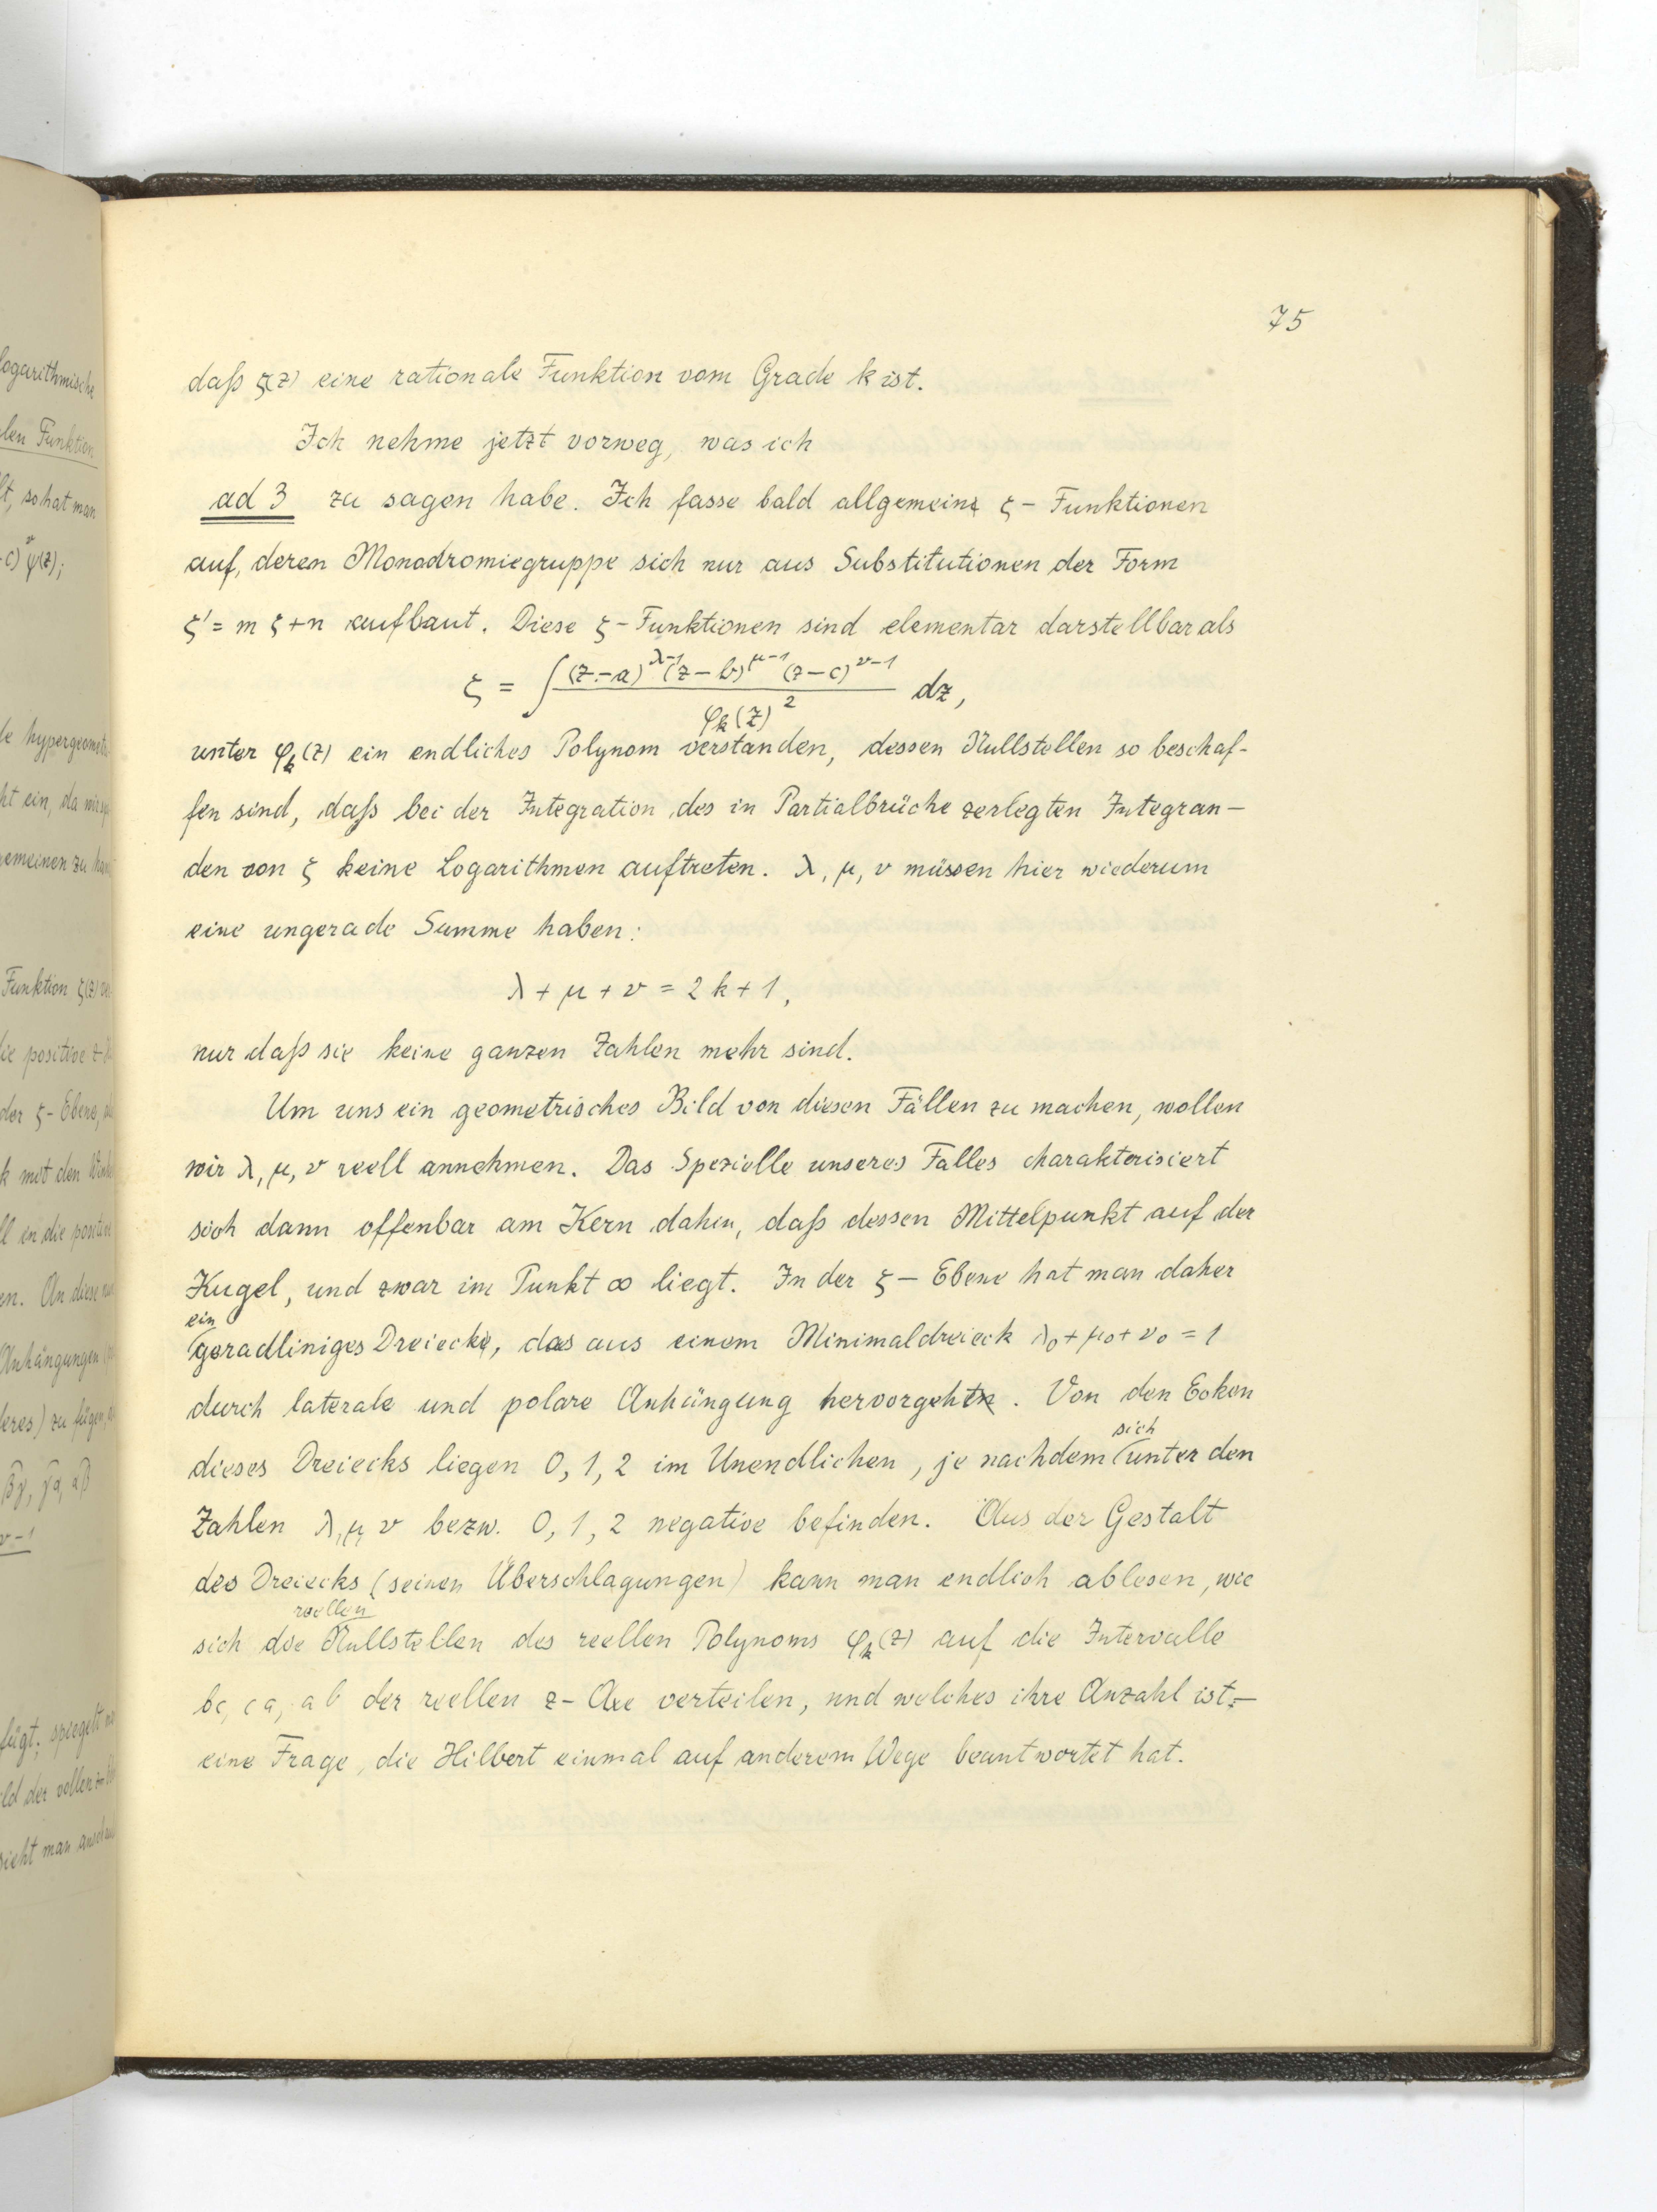 75
daß ζ(z) eine rationale Funktion vom Grade k ist.
Ich nehme jetzt vorweg, was ich
ad 3 zu sagen habe. Ich fasse bald allgemeine ζ - Funktionen
auf, deren Monodromiegruppe sich nur aus Substitutionen der Form
ζ' = m ζ + n aufbaut. Diese ζ - Funktionen sind elementar darstellbar als
ζ = ∫ (z-a)^{λ-1} (z-b)^{μ-1} (z-c)^{ν-1} / φ_k(z)^2 dz,
unter φ_k(z) ein endliches Polynom verstanden, dessen Nullstellen so beschaf-
fen sind, daß bei der Integration des in Partialbrüche zerlegten Integran-
den von ζ keine Logarithmen auftreten. λ, μ, ν müssen hier wiederum
eine ungerade Summe haben:
λ + μ + ν = 2k + 1,
nur daß sie keine ganzen Zahlen mehr sind.
Um uns ein geometrisches Bild von diesen Fällen zu machen, wollen
wir λ, μ, ν reell annehmen. Das Spezielle unseres Falles charakterisiert
sich dann offenbar am Kern dahin, daß dessen Mittelpunkt auf der
Kugel, und zwar im Punkt ∞ liegt. In der ζ - Ebene hat man daher
ein
geradliniges Dreieck, das aus einem Minimaldreieck λ₀ + μ₀ + ν₀ = 1
durch laterale und polare Anhängung hervorgeht. Von den Ecken
sich
dieses Dreiecks liegen 0, 1, 2 im Unendlichen, je nachdem unter den
Zahlen λ, μ, ν bezw. 0, 1, 2 negative befinden. Aus der Gestalt
des Dreiecks (seinen Überschlagungen) kann man endlich ablesen, wie
reellen
sich die Nullstellen des reellen Polynoms φ_k(z) auf die Intervalle
bc, ca, ab der reellen z - Axe verteilen, und welches ihre Anzahl ist, -
eine Frage, die Hilbert einmal auf anderem Wege beantwortet hat.